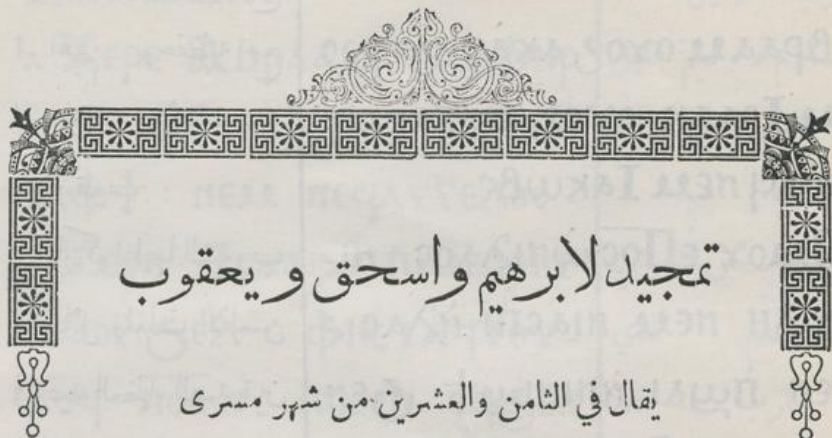 تمجيد لابرهيم واسحق ويعقوب
يقال في الثامن والعشرين من شهر مسرى